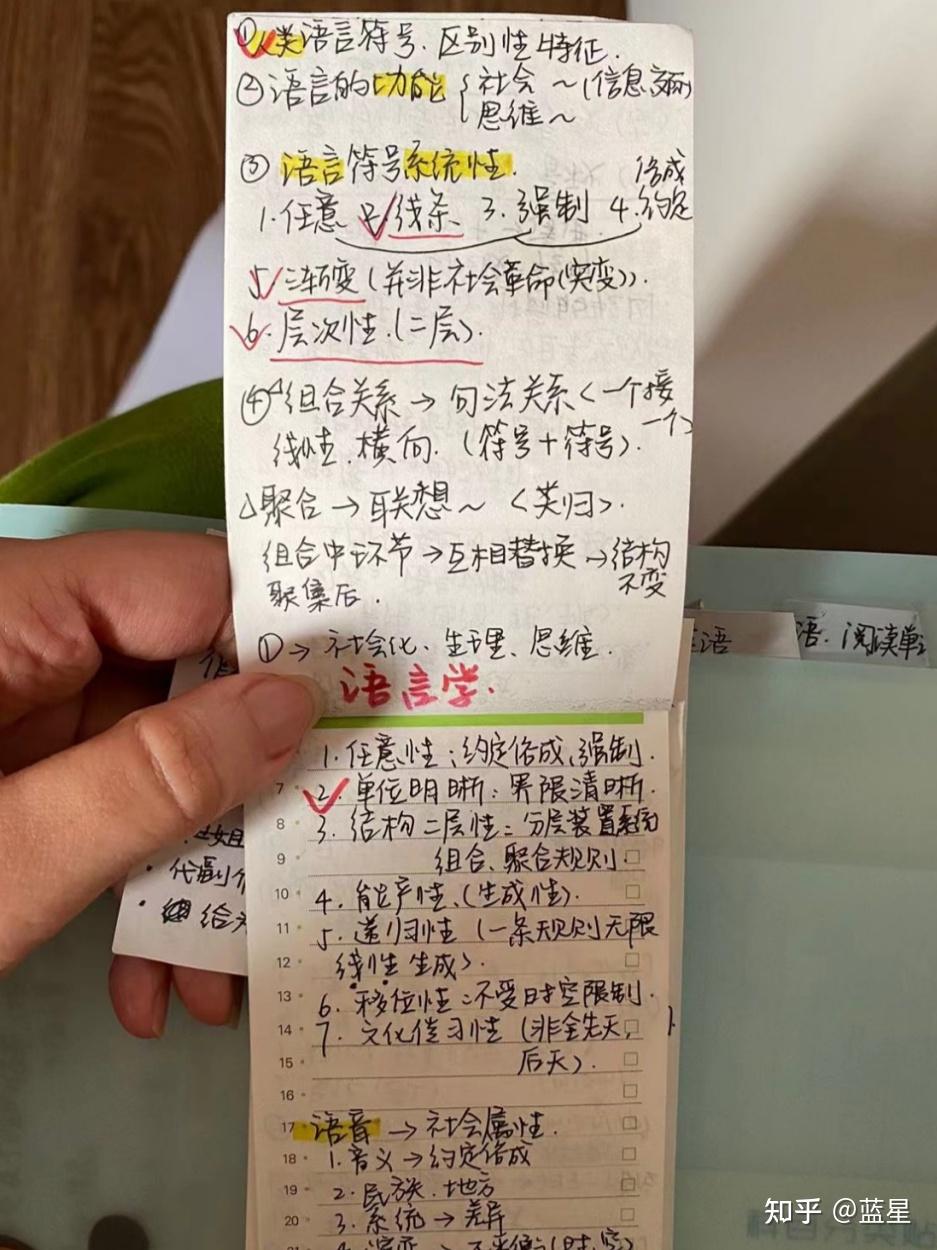 ①人类语言符号、区别性特征.
②语言的功能 { 社会 ~ (信息交流)
思维 ~
③ 语言符号系统性.
俗成
1.任意 2.线条、 3.强制 4.约定
5.渐变(并非社会革命(突变)).
6.层次性.(二层).
④组合关系 → 句法关系 < 一个接
一个>
线性、横向. (符号+符号).
△聚合 → 联想 ~ <类归>.
组合中环节 → 互相替换 → 结构
不变
聚集后.
①→ 社会化、生理、思维.
语言学.
语. 阅读单
1.任意性:约定俗成、强制.
7
2.单位明晰:界限清晰.
8
3.结构二层性:分层装置系统
9
组合、聚合规则
10
4.能产性.(生成性).
11
5.递归性 (一条规则无限
12
线性生成).
13
6.移位性:不受时空限制.
14
7.文化传习性 (非全先天,
15
后天).
16
17
语音 → 社会属性.
18
1.音义 → 约定俗成
19
2.民族、地方
20
3.系统 → 差异
知乎 @蓝星